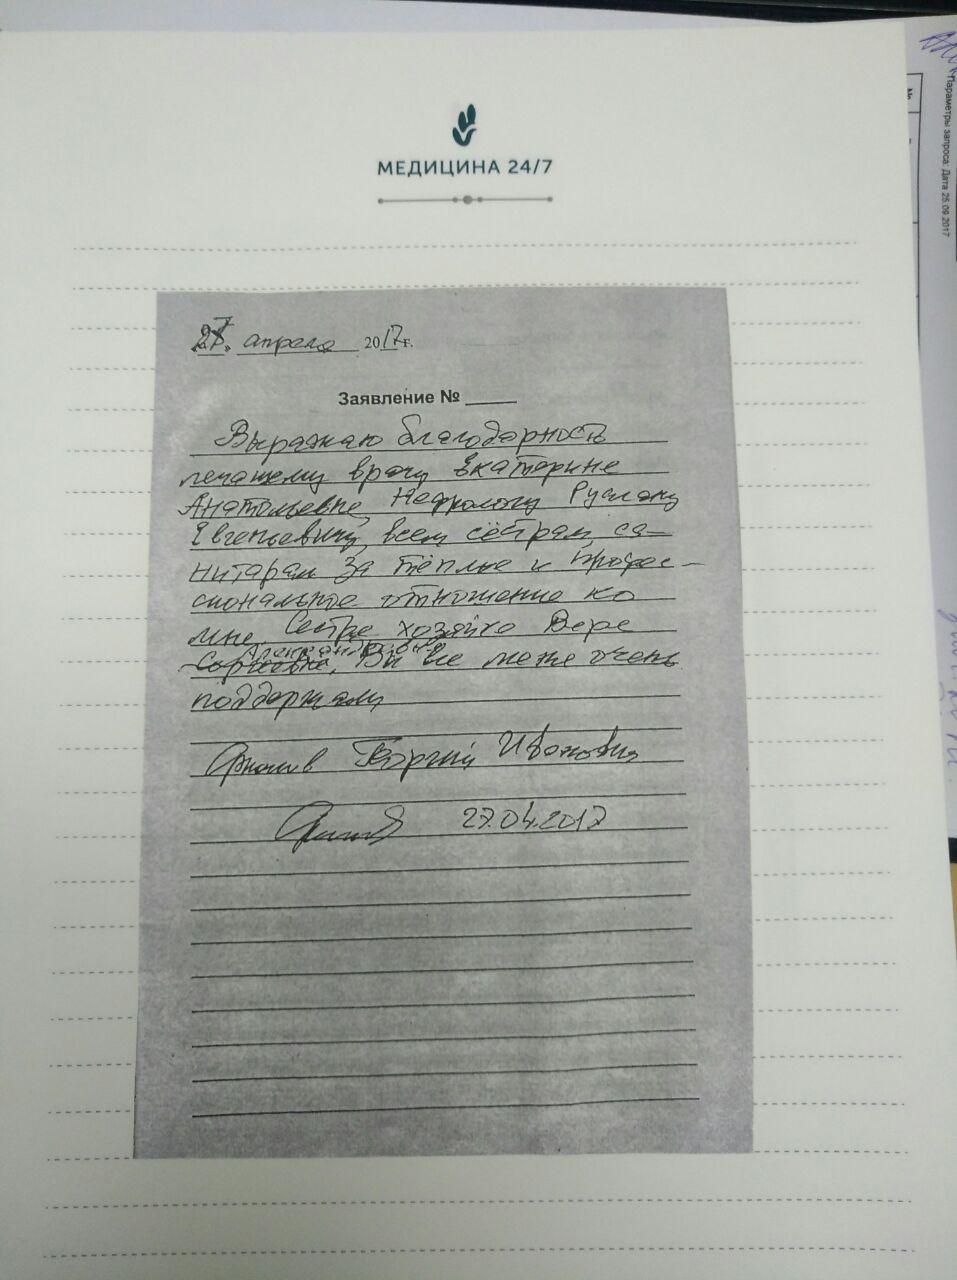 МЕДИЦИНА 24/7
Параметры запроса: Дата 25.09.2017
№
„27“ апреля 2017 г.
Заявление № ____
Выражаю благодарность
лечащему врачу Екатерине
Анатольевне, Нефрологу Руслану
Евгеньевичу, всем сёстрам, са-
нитарам за тёплые и профес-
сиональное отношение ко
мне. Сестре хозяйке Вере
Александровне, Вы все меня очень
поддержали
Георгий Иванович
27.04.2017